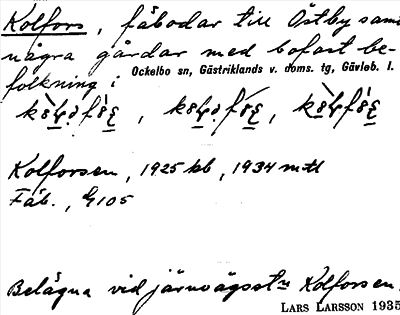 Kolfors, fäbodar till Östby samt
några gårdar med bofast be-
folkning i
Ockelbo sn, Gästriklands v. doms. tg, Gävleb. l.
Kolforsen, 1925 kb, 1934 mtl
Fäb., G 105
Belägna vid järnvägsstn Kolforsen.
LARS LARSSON 1935